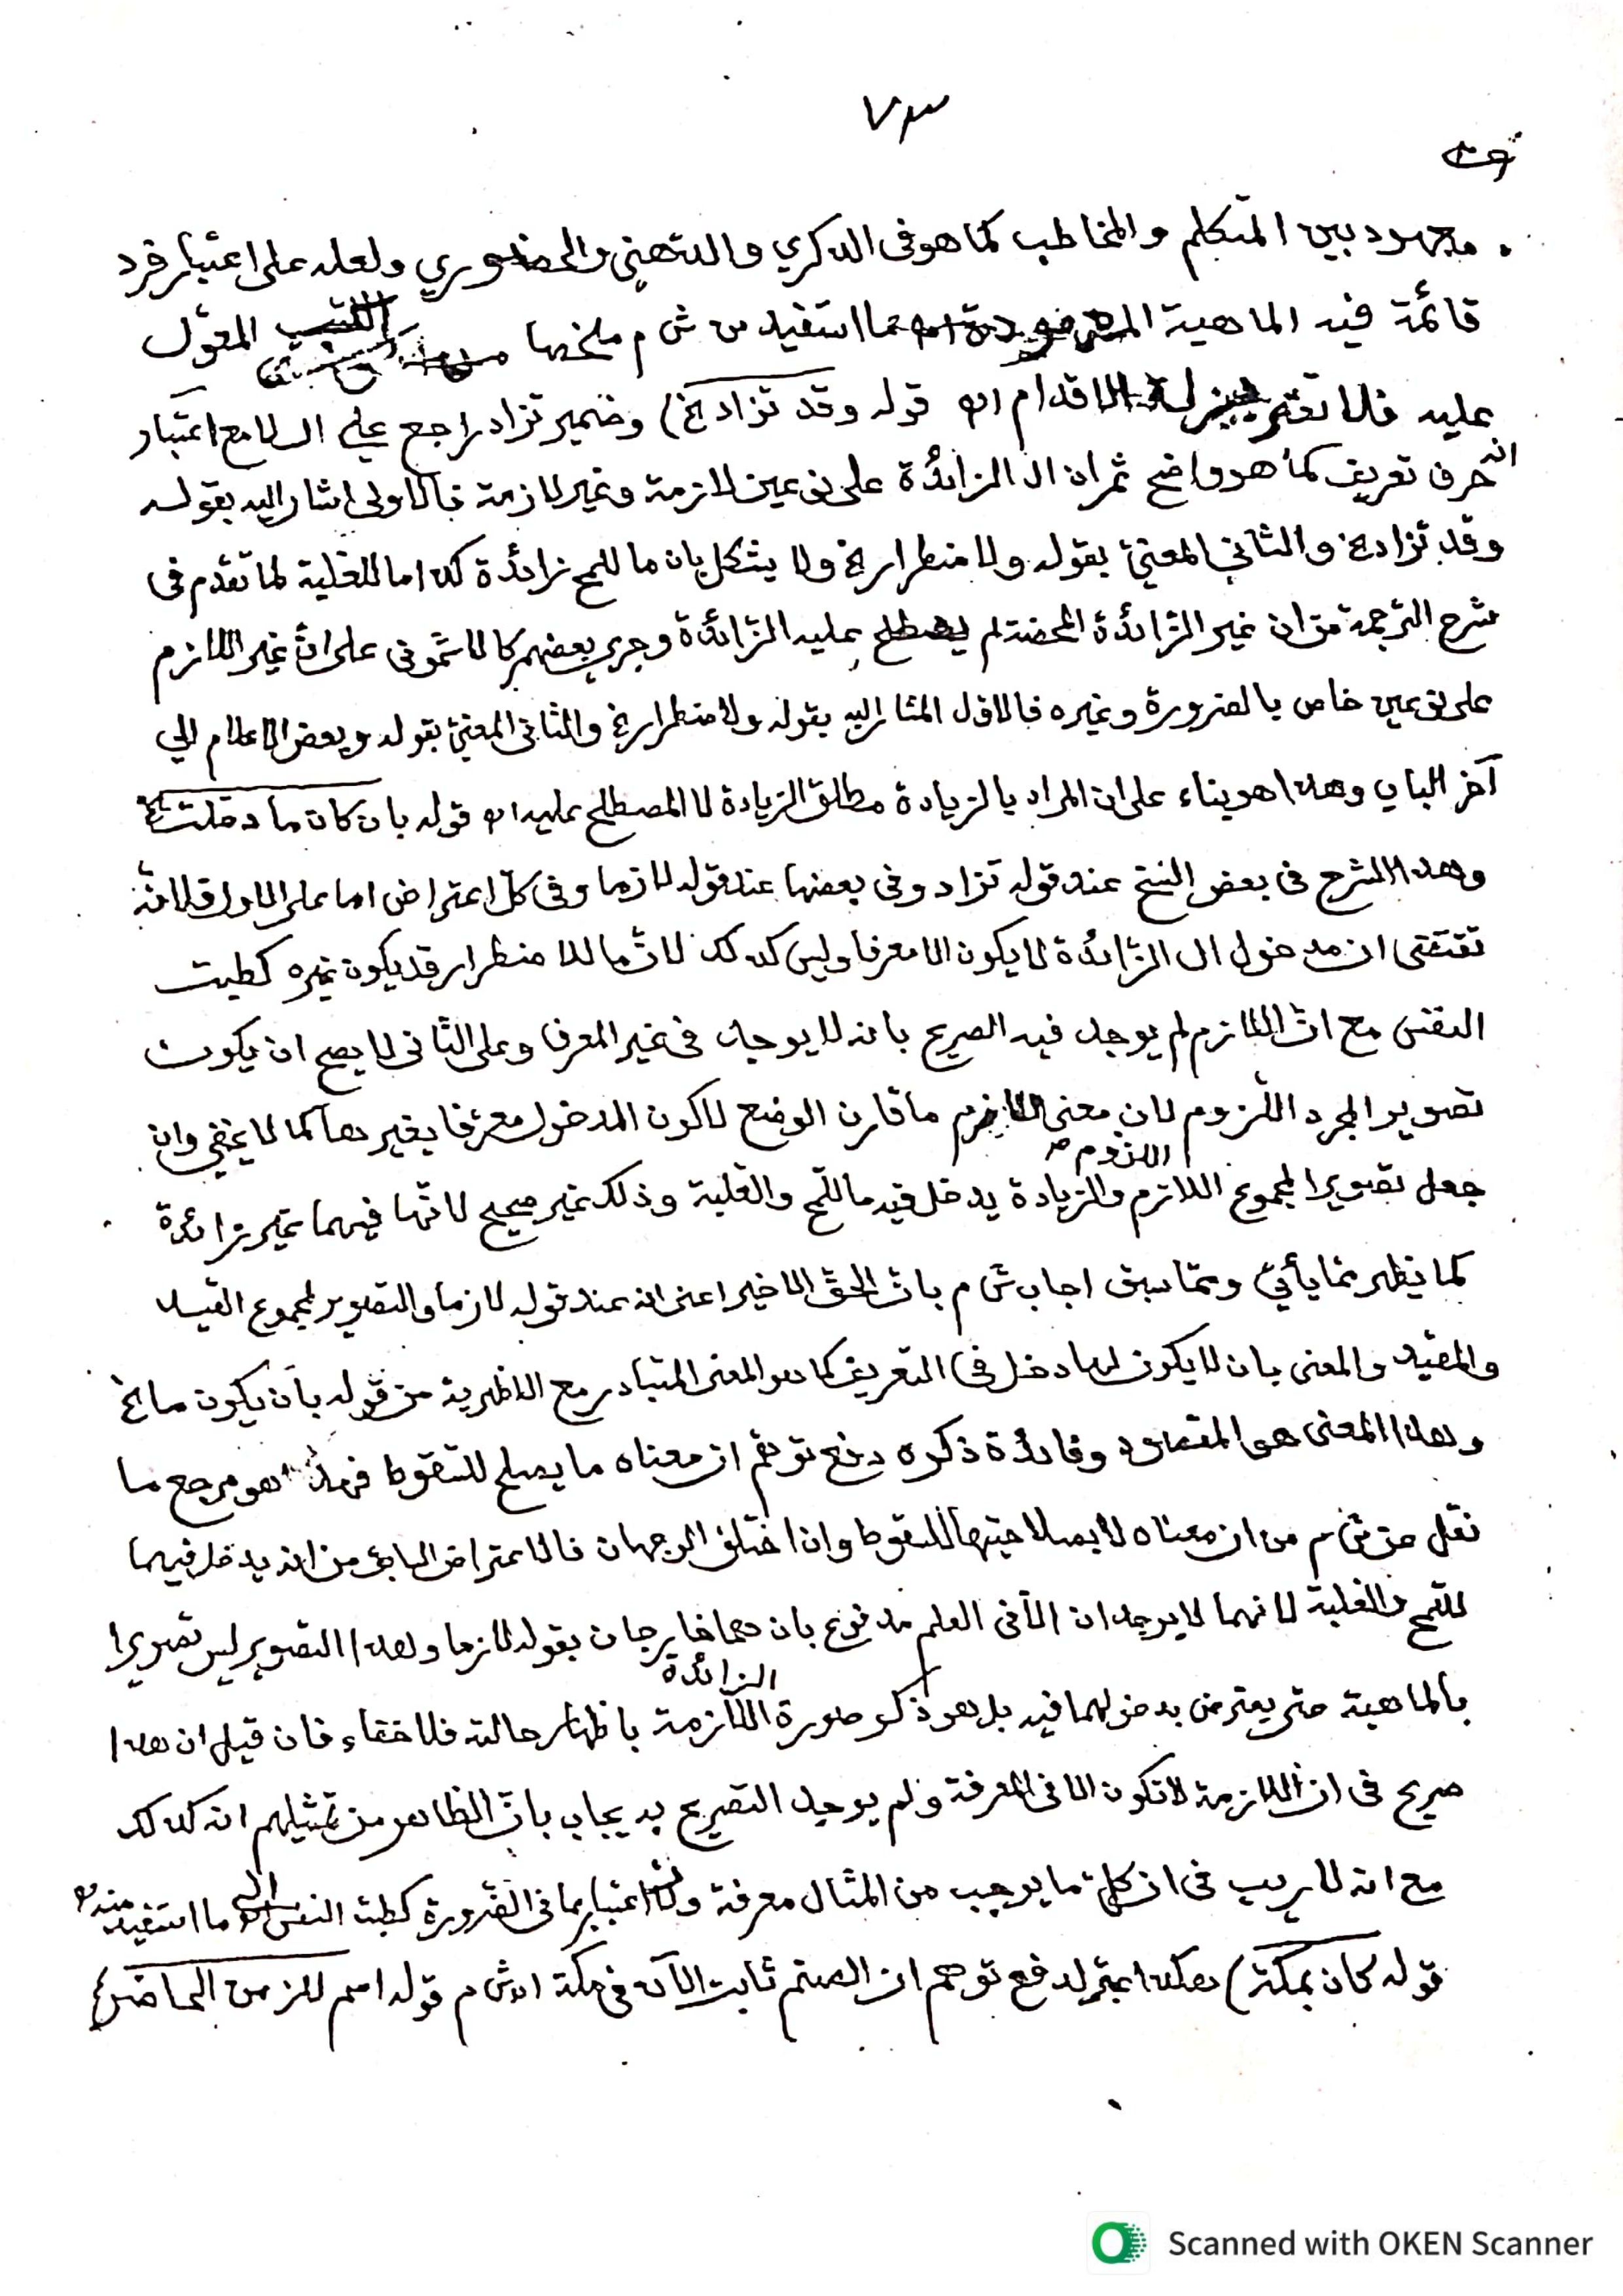 ٧٣
معهود بين المتكلم والمخاطب كما هو في الذكري والذهني والحضوري ولعله على اعتبار فرد
قائمة فيه الماهية مما استفيد من ش م ملخصا المعول
عليه فلا تغتر الاقدام اه قوله وقد تزاد الخ) وضمير تزاد راجع على ال لا مع اعتبار
انه حرف تعريف كما هو واضح ثم ان ال الزائدة على نوعين لازمة وغير لازمة فالاولى اشار اليه بقوله
وقد تزاد الخ والثاني المعني بقوله ولاضطرار الخ ولا يشكل بان ما للمح زائدة كذا ما للغلبة لما تقدم في
شرح الترجمة من ان غير الزائدة المحضة لم يصطلح عليه الزائدة وجرى بعضهم كالاشموني على ان غير اللازم
على نوعين خاص بالضرورة وغيره فالاول المشار اليه بقوله ولاضطرار الخ والثاني المعني بقوله وبعض الاعلام الى
آخر الباب وهذا هو بناء على ان المراد بالزيادة مطلق الزيادة لا المصطلح عليه اه قوله بان كان ما دخلت الخ
وهذا الشرح في بعض النسخ عند قوله تزاد وفي بعضها عند قوله لازما وفي كل اعتراض اما على الاول فلانه
تقتضى ان مدخول ال الزائدة لا يكون الا معرفا وليس كذلك لان ما للاضطرار قد يكون غيره كطبت
النفس مع ان اللازم لم يوجد فيه الصريح بانه لا يوجد في غير المعرف وعلى الثاني لا يصح ان يكون
تصويرا لمجرد اللزوم لان معنى اللازم ما قارن الوضع لا كون المدخول معرفا بغيرها كما لا يخفى وان
اللزوم
جعل تصويرا لمجموع اللازم والزيادة يدخل فيه ما للمح والغلبة وذلك غير صحيح لانها فيهما غير زائدة
كما يظهر مما يأتي ومما سبق اجاب ش م بان الحق الاخير اعنى انه عند قوله لازما والتصوير لمجموع القيد
والمقيد والمعنى بان لا يكون لها دخل في التعريف كما هو المعنى المتبادر مع الاظهرية من قوله بان يكون ما الخ
وهذا المعنى هو المقصود وفائدة ذكره دفع توهم ان معناه ما يصلح للسقوط فهذا هو مرجع ما
نقل عن ش م من ان معناه لا بصلاحيتها للسقوط وان اختلف الوجهان فالاعتراض السابق من انه يدخل فيهما
للمح والغلبة لانهما لا يوجدان الا في العلم مدفوع بان هما خارجان بقوله لازما وهذا التصوير ليس تصويرا
الزائدة
بالماهية حتى يعترض بدخولهما فيه بل هو ذكر صورة اللازمة باظهار حالته فلا خفاء فان قيل ان هذا
صريح في ان اللازمة لا تكون الا في المعرفة ولم يوجد التصريح به يجاب بان الظاهر من تمثيلهم انه كذلك
مع انه لا ريب في ان كل ما يوجب من المثال معرفة ولا اعتبار بما في الضرورة كطبت النفس اه ما استفيد منه
قوله كان بمكة) هكذا عبر لدفع توهم ان الصنم ثابت الآن في مكة اه ش م قوله اسم للزمن الحاضر)
Scanned with OKEN Scanner